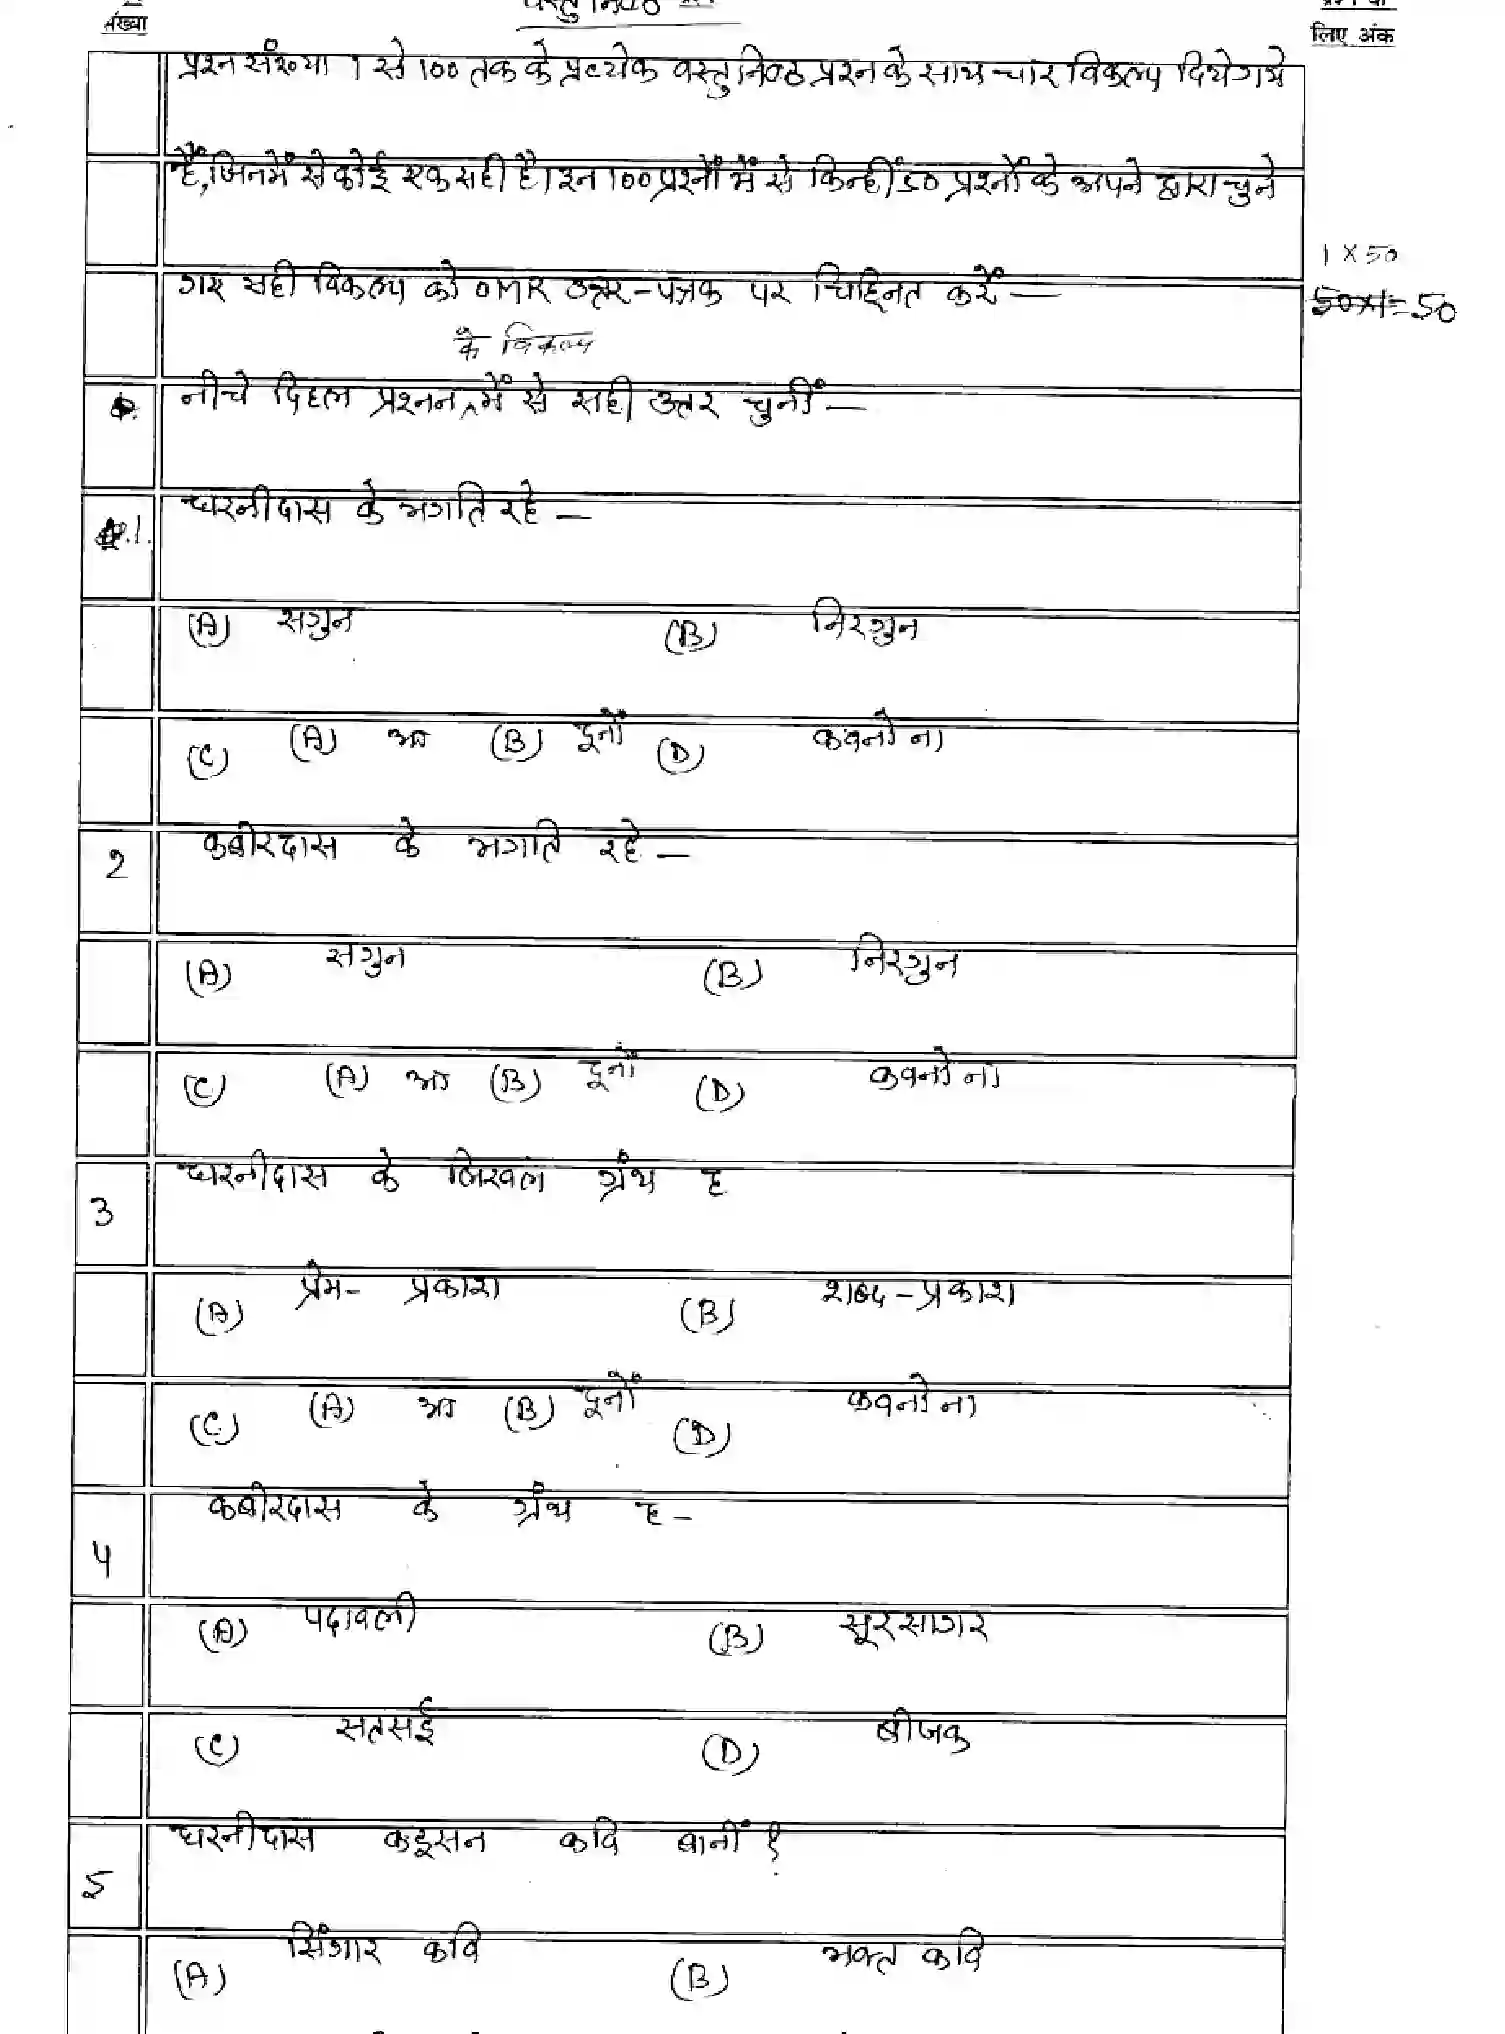 संख्या
वस्तुनिष्ठ
लिए अंक
प्रश्न संख्या 1 से 100 तक के प्रत्येक वस्तुनिष्ठ प्रश्न के साथ चार विकल्प दिये गये
हैं, जिनमें से कोई एक सही है। इन 100 प्रश्नों में से किन्हीं 50 प्रश्नों के अपने द्वारा चुने
1 X 50
गए सही विकल्प को OMR उत्तर-पत्रक पर चिह्नित करें —
50x1=50
के विकल्प
नीचे दिहल प्रश्नन में से सही उत्तर चुनीं —
1. धरनीदास के भगति रहे —
(A) सगुन (B) निरगुन
(C) (A) आ (B) दूनों (D) कवनो ना
2 कबीरदास के भगति रहे —
(A) सगुन (B) निरगुन
(C) (A) आ (B) दूनों (D) कवनो ना
3 धरनीदास के लिखल ग्रंथ ह
(A) प्रेम- प्रकाश (B) शब्द-प्रकाश
(C) (A) आ (B) दूनों (D) कवनो ना
4 कबीरदास के ग्रंथ ह -
(A) पदावली (B) सूरसागर
(C) सतसई (D) बीजक
5 धरनीदास कइसन कवि बानीं ?
(A) सिंगार कवि (B) भक्त कवि